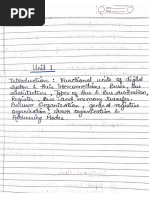 Unit 1
Introduction : Functional units of digital
system & their interconnections, Buses, bus
architecture, Types of Bus & Bus Arbitration,
Register, Bus and memory transfer.
Processor Organization, general registers
organization, stack organization &
Addressing Modes